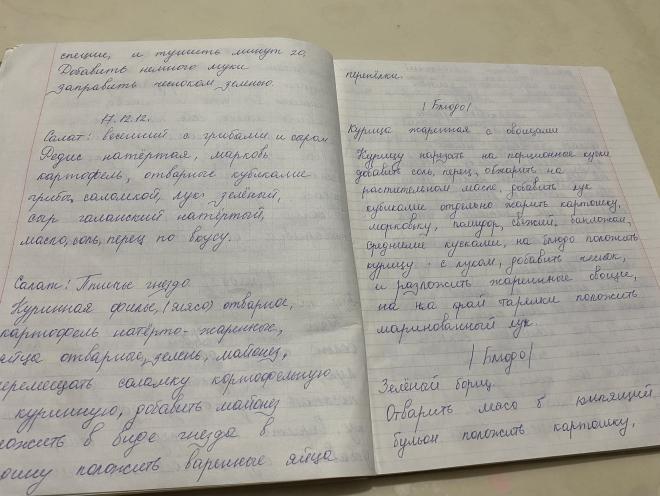 специи, и тушить минут 20,
Добавить немного муки
заправить чесноком зеленью.
17.12.12.
Салат: весенний с грибами и сыром
Редис натёртая, морковь
картофель, отварные кубиками
грибы, соломкой, лук зелёный,
сыр галанский натёртый,
масло, соль, перец по вкусу.
Салат: Птичье гнездо
Куринная филье, (мясо) отварное,
картофель натёрто-жаренные,
яйца отварные, зелень, майонез,
перемешать соломку кортофельную
куринную, добавить майонез
ложить в виде гнезда в
положить варенные яйца
перепёлки.
|Блюдо|
Курица жаренная с овощами
Курицу нарезать на порционные куски
добавить соль, перец, обжарить на
растительном масле, добавить лук
кубиками отдельно жарить картошку,
морковку, помидор, свежий, баклажан,
средними кусками, на блюдо положить
курицу с луком, добавить чеснок,
и разложить жаренные овощи,
на край тарелки положить
маринованный лук.
|Блюдо|
Зелёный борщ.
Отварить мясо в кипящий
бульон положить картошку,